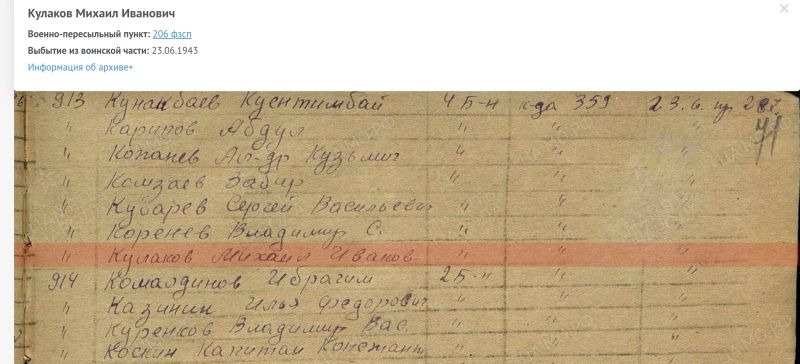 Кулаков Михаил Иванович
Военно-пересыльный пункт: 206 фзсп
Выбытие из воинской части: 23.06.1943
Информация об архиве+
913 Кунакбаев Куентимбай 4 Б-н к-да 359 23.6. пр 287.
" Карипов Абдул " " "
71
" Копанев Ал-др Кузьмич " " "
" Комзаев Забир " " "
" Кубарев Сергей Васильевич " " "
" Коренев Владимир С. " " "
" Кулаков Михаил Иванов. " " "
914 Комалдинов Ибрагим 2 Б-н " "
" Казинин Илья Федорович " " "
" Куренков Владимир Вас. " " "
" Коскин Капитан Констант " " "